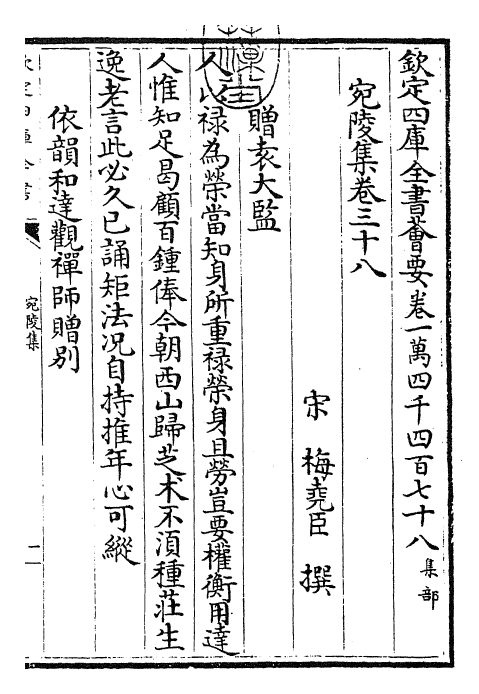 欽定四庫全書薈要卷一萬四千四百七十八 集部
宛陵集卷三十八
宋 梅堯臣 撰
贈袁大監
人以禄為榮當知身所重禄榮身且勞豈要權衡用達
人惟知足曷顧百鍾俸今朝西山歸芝术不湏種莊生
逸老言此必久已誦矩法况自持推年心可縱
依韻和達觀禪師贈别
宛陵集